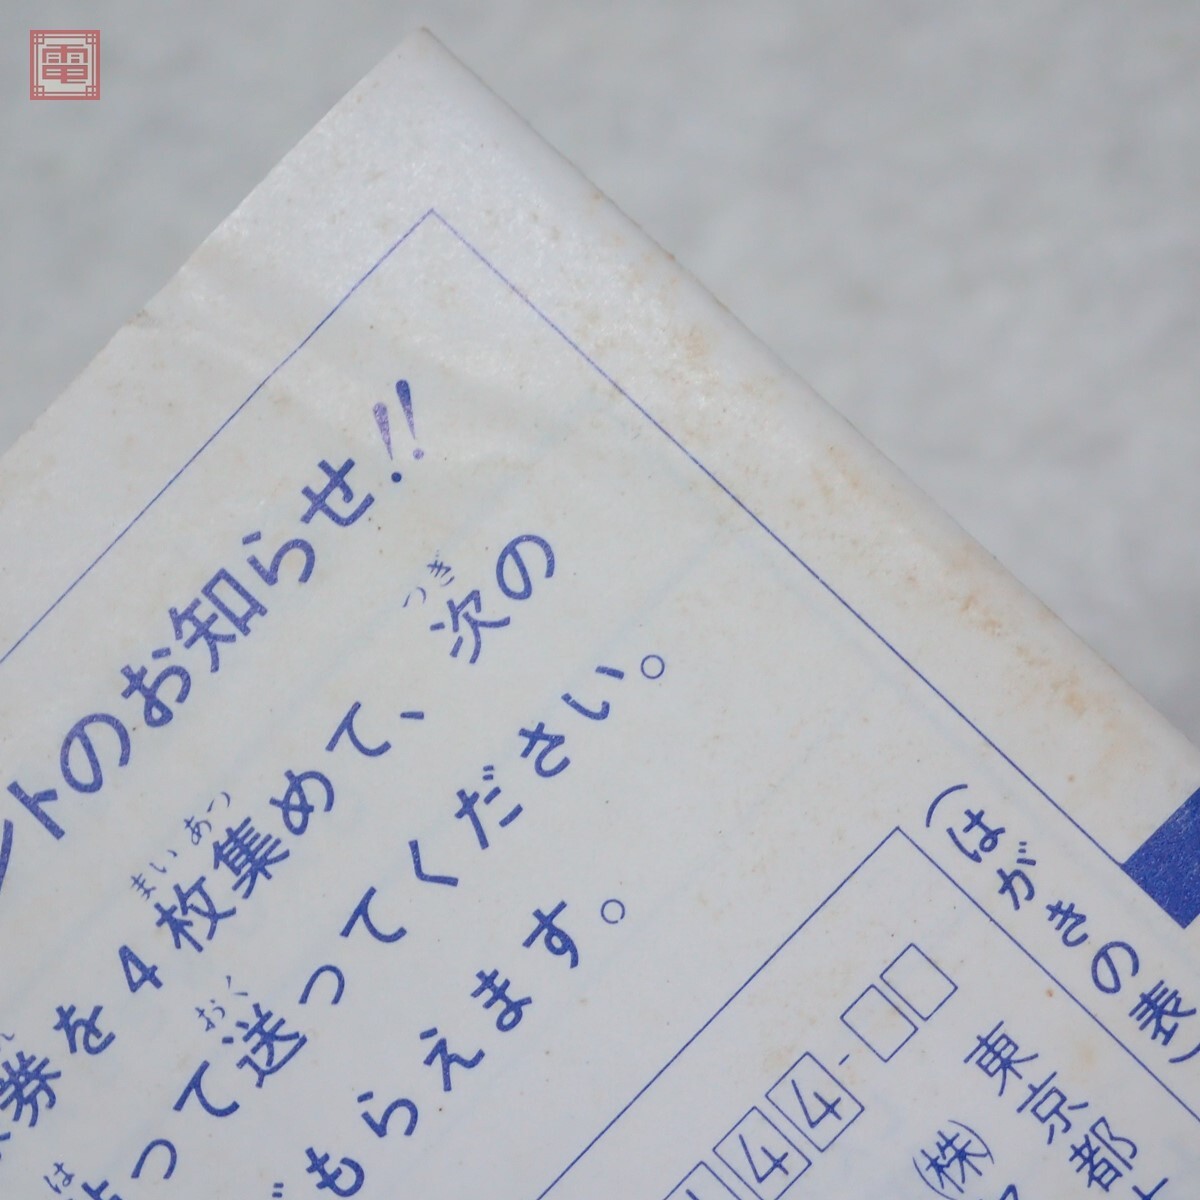 電
ントのお知らせ!!
券を4枚集めて、次の
まいあつ
つぎ
って送ってください。
おく
もらえます。
は
(はがきの表)
44-
東京都
(株)